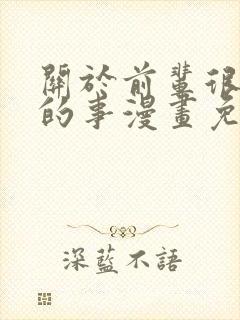 關於前輩很
的事漫畫免
深藍不語